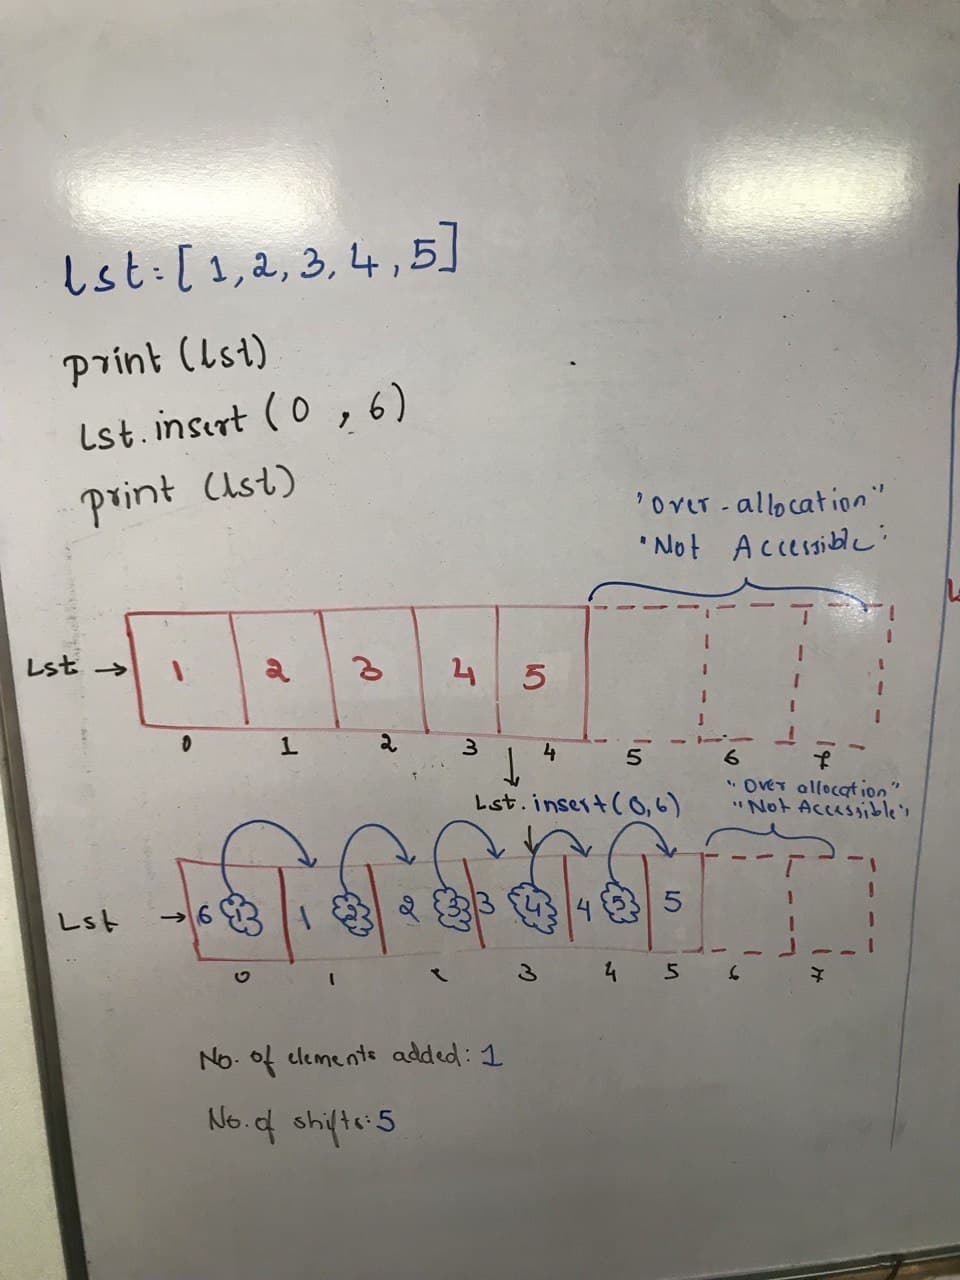 lst=[1,2,3,4,5]
print (lst)
Lst.insert (0 , 6)
print (lst)
"Over-allocation"
"Not Accessible"
Lst → 1 2 3 4 5
0 1 2 3 4 5 6 7
Lst.insert(0,6)
"Over allocation"
"Not Accessible"
Lst → 6 1 1 2 2 3 3 4 4 5 5
0 1 3 4 5 6 7
No. of elements added: 1
No. of shifts: 5